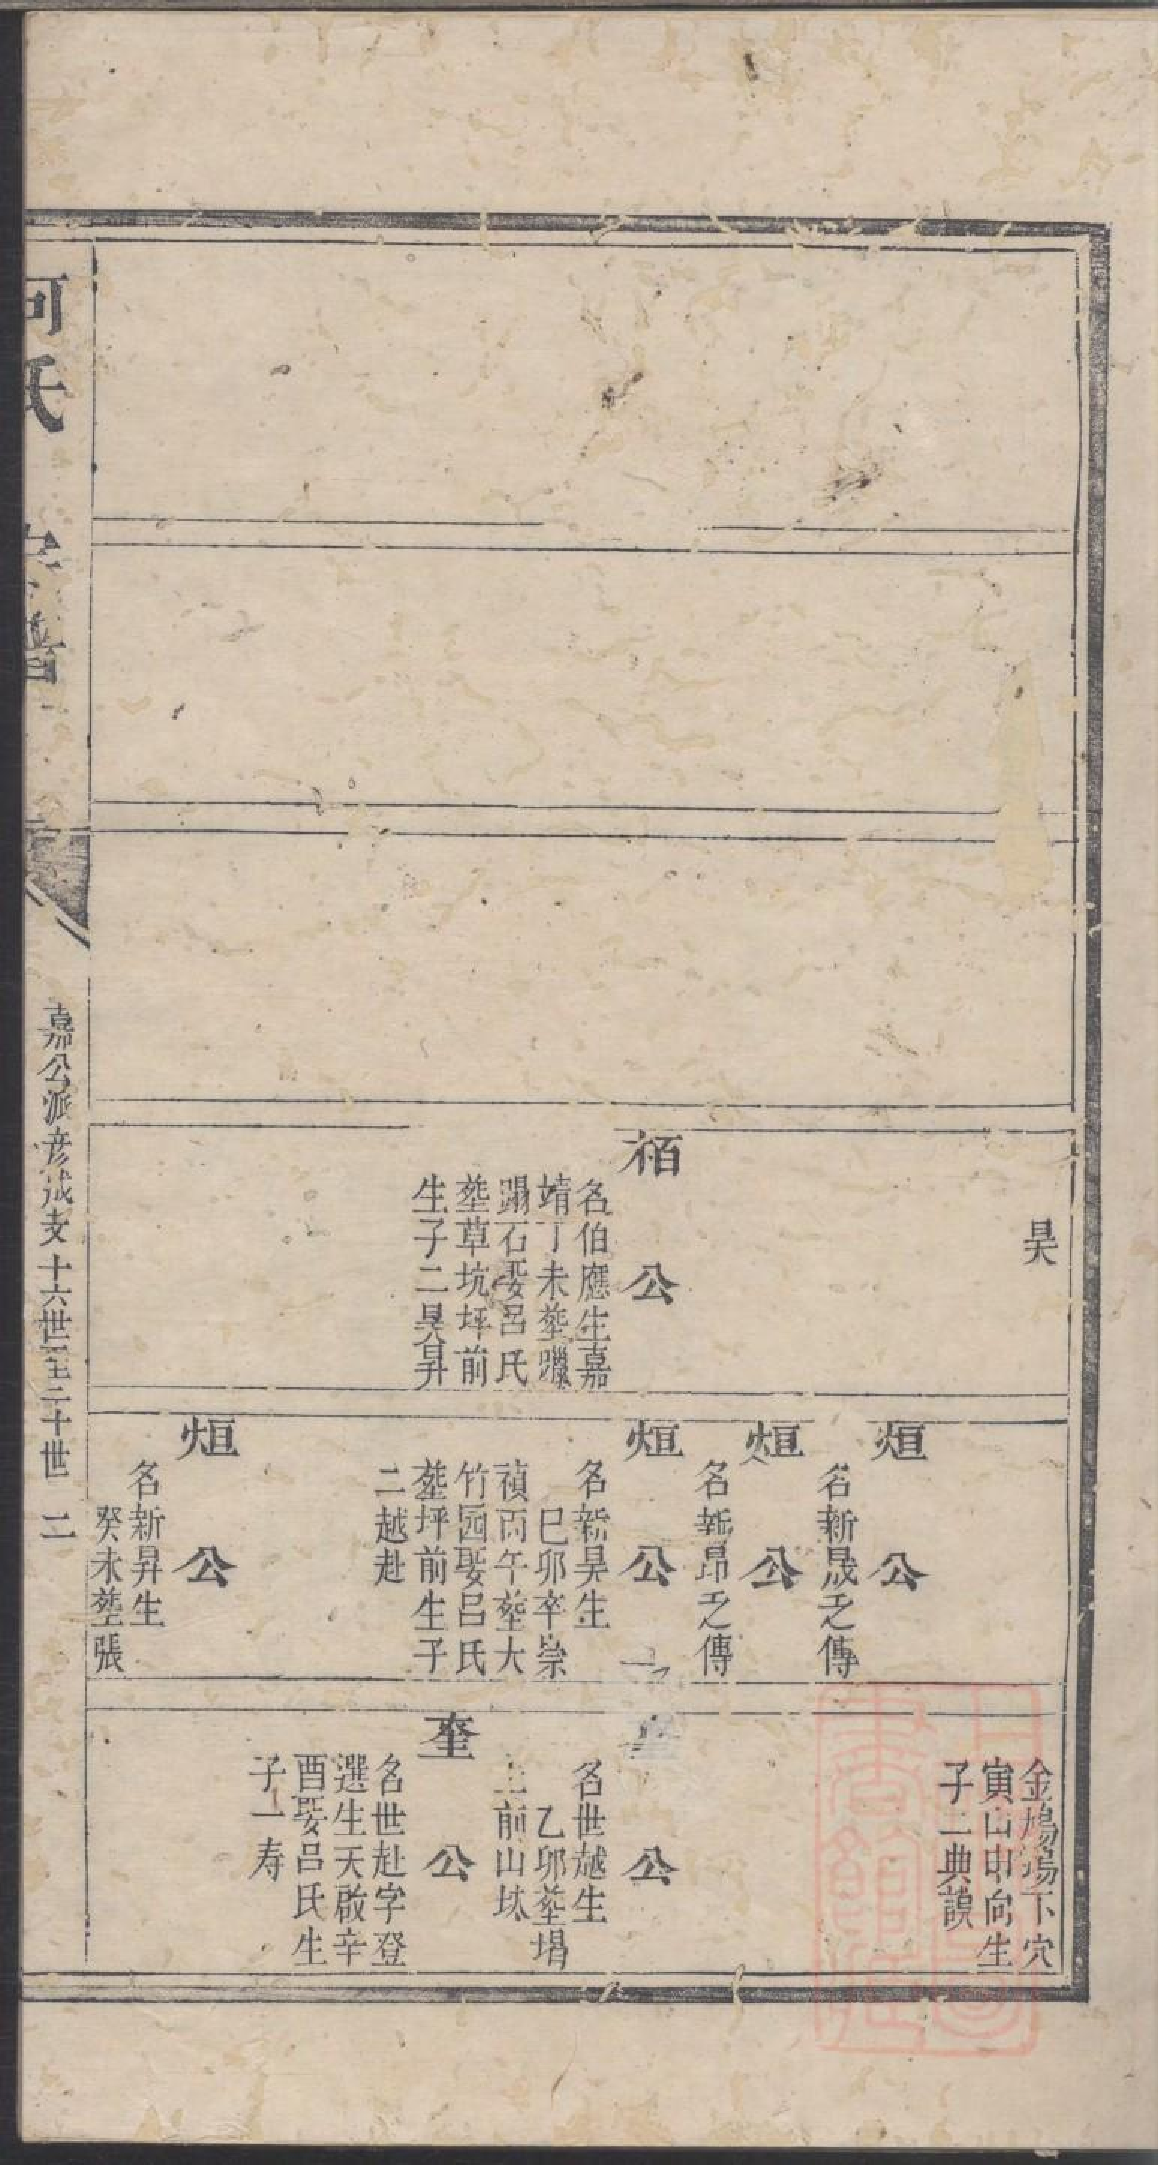 昊
栢公
名伯應生嘉
靖丁未塟躐
蹋石娶呂氏
塟草坑坪前
生子二昊昇
烜公
名新晟之傳
烜公
名新昂之傳
烜公
名新昊生
巳卯卒崇
禎丙午塟大
竹园娶呂氏
塟坪前生子
二越赴
烜公
名新昇生
癸未塟張
金鳩湯下穴
寅山申向生
子二典謨
公
名世越生
乙卯塟塌
上前山坑
奎公
名世赴字登
選生天啟辛
酉娶呂氏生
子一寿
何氏宗譜
嘉公派彦誠支十六世至二十世 二